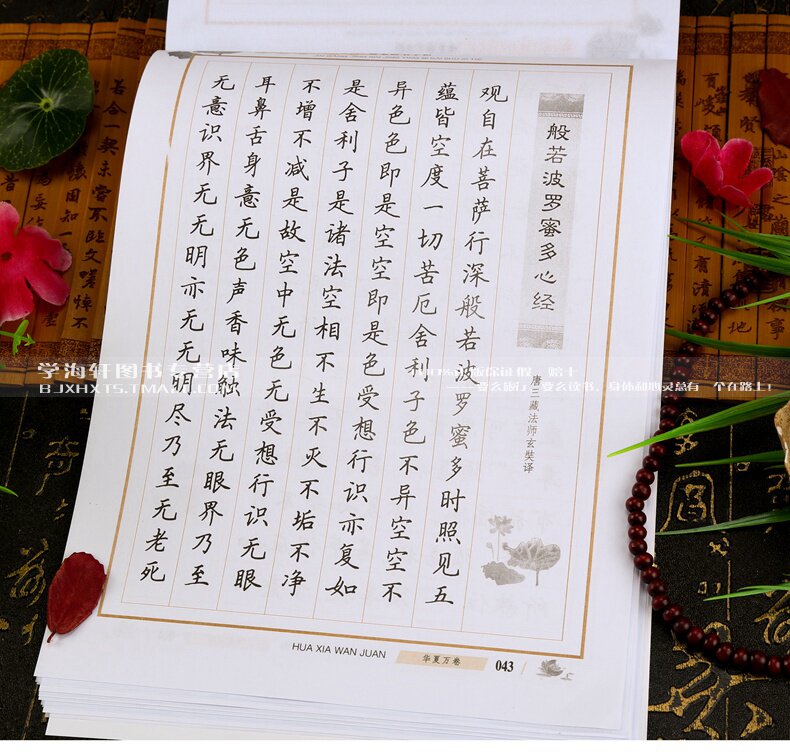 般若波罗蜜多心经
唐三藏法师玄奘译
观自在菩萨行深般若波罗蜜多时照见五
蕴皆空度一切苦厄舍利子色不异空空不
异色色即是空空即是色受想行识亦复如
是舍利子是诸法空相不生不灭不垢不净
不增不减是故空中无色无受想行识无眼
耳鼻舌身意无色声香味触法无眼界乃至
无意识界无无明亦无无明尽乃至无老死
HUA XIA WAN JUAN
华夏万卷
043
学海轩图书专营店
BJXHXTS.TMALL
要么旅行、要么读书、身体和心灵总有一个在路上!